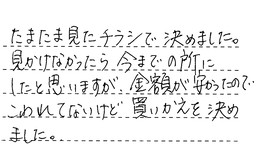 たまたま見たチラシで決めました。
見かけなかったら今までの所に
したと思いますが、金額が安かったので
こわれてないけど買いかえを決め
ました。